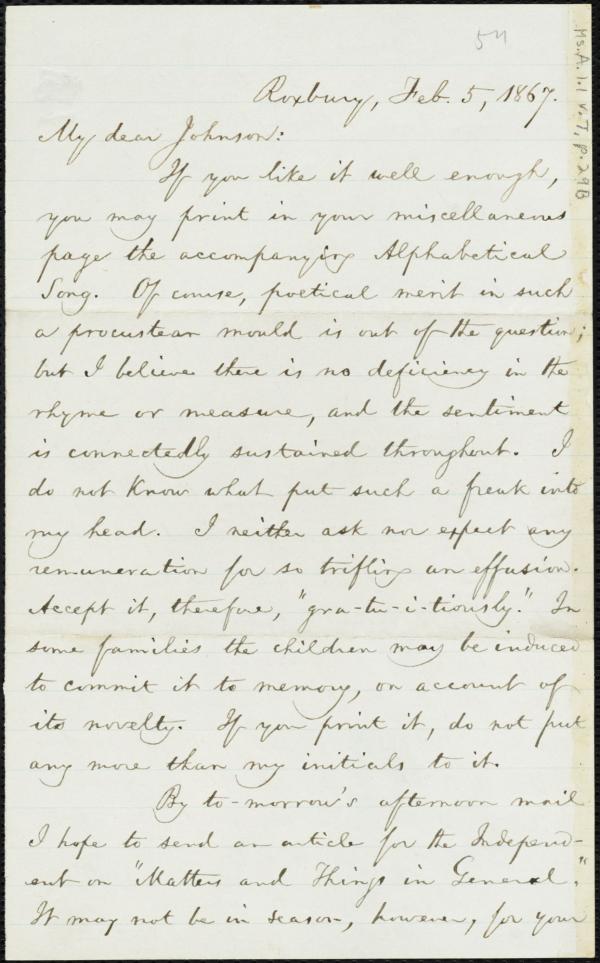 54
Ms. A. 1. 1 v. 7, p. 29B
Roxbury, Feb. 5, 1867.
My dear Johnson:
If you like it well enough,
you may print in your miscellaneous
page the accompanying Alphabetical
Song. Of course, poetical merit in such
a procustean mould is out of the question;
but I believe there is no deficiency in the
rhyme or measure, and the sentiment
is connectedly sustained throughout. I
do not know what put such a freak into
my head. I neither ask nor expect any
remuneration for so trifling an effusion.
Accept it, therefore, "gra-tu-i-tiously." In
some families the children may be induced
to commit it to memory, on account of
its novelty. If you print it, do not put
any more than my initials to it.
By to-morrow's afternoon mail
I hope to send an article for the Independ-
ent on "Matters and Things in General."
It may not be in season, however, for your